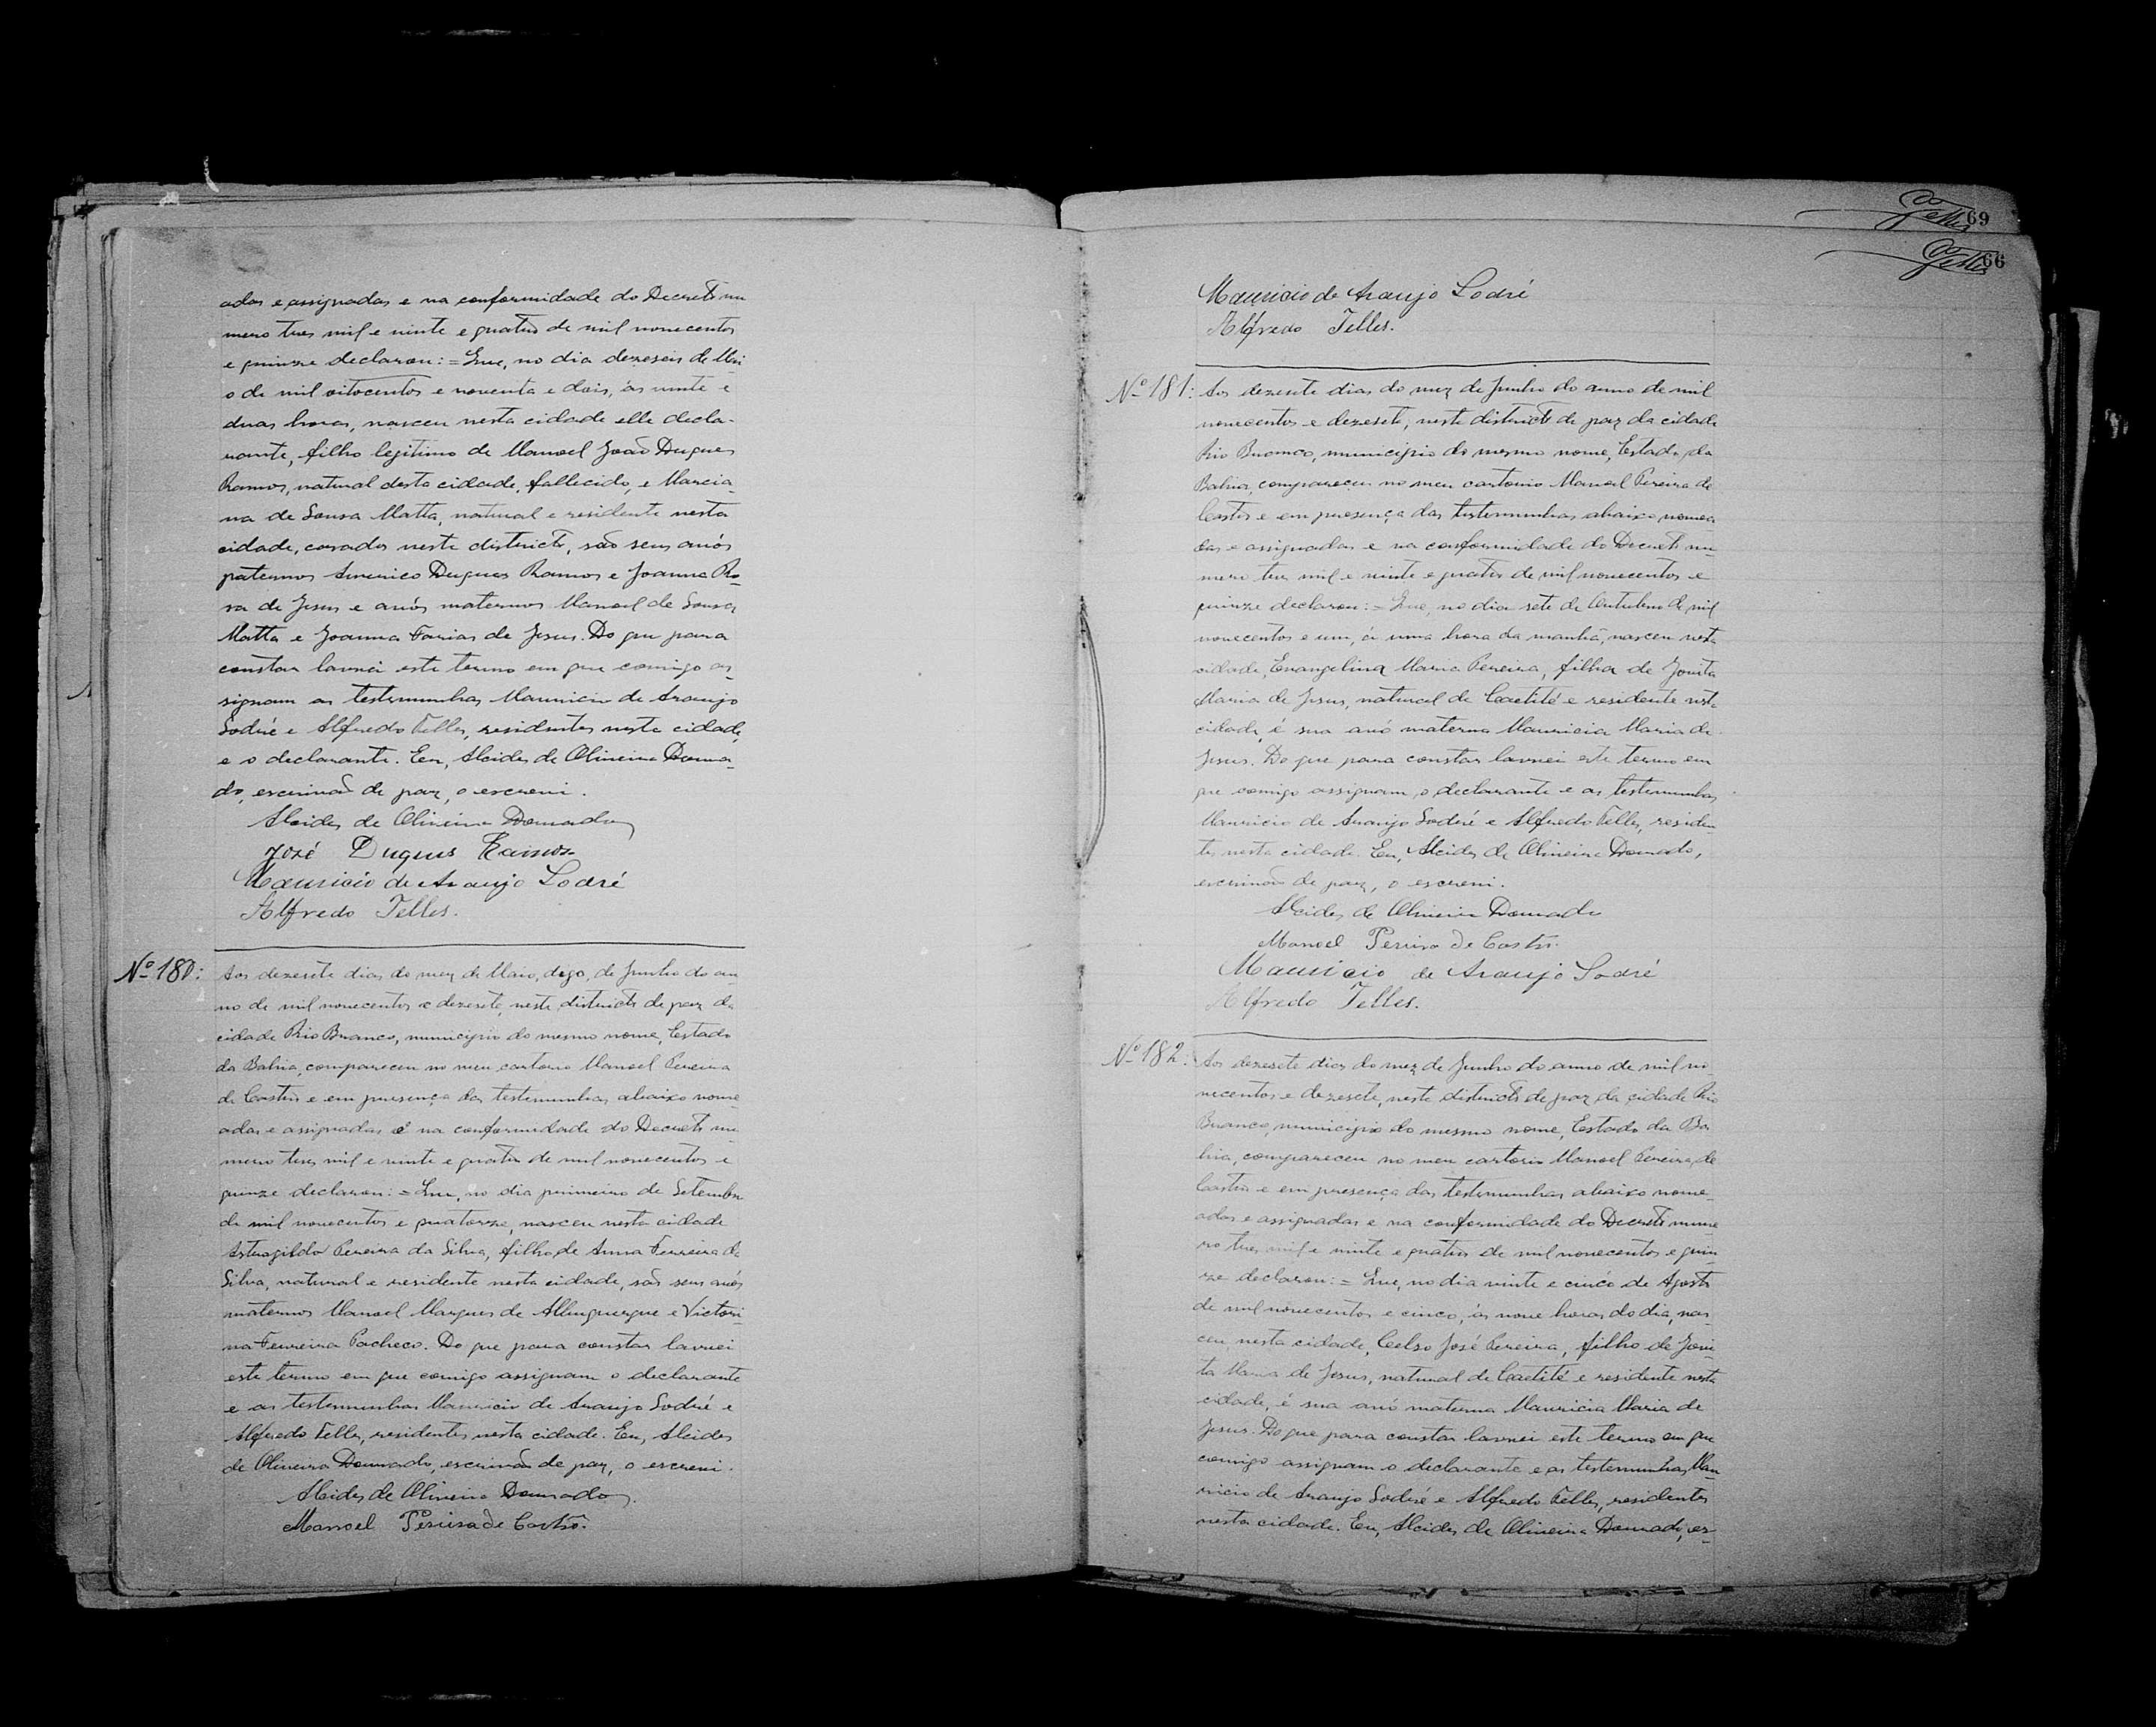 adas e assignadas e na conformidade do Decreto nu
mero tres mil e vinte e quatro de mil novecentos
e quinze declarou: = Que, no dia dezeseis de Mai
o de mil oitocentos e noventa e dois, ás vinte e
duas horas, nasceu nesta cidade elle decla-
rante, filho legitimo de Manoel João Duques
Ramos, natural desta cidade, fallecido, e Marcia-
na de Sousa Matta, natural e residente nesta
cidade, casados neste districto, são seus avós
paternos Americo Duques Ramos e Joanna Ro-
sa de Jesus e avós maternos Manoel de Sousa
Matta e Joanna Farias de Jesus. Do que para
constar lavrei este termo em que comigo as-
signam as testemunhas Mauricio de Araujo
Sodré e Alfredo Telles, residentes nesta cidade,
e o declarante. Eu, Alcides de Oliveira Doura-
do, escrivão de paz, o escrevi.
Alcides de Oliveira Dourado
José Duques Ramos
Mauricio de Araujo Sodré
Alfredo Telles.
Nº 180: Aos dezesete dias do mez de Maio, digo, de Junho do an-
no de mil novecentos e dezesete, neste districto de paz da
cidade Rio Branco, municipio do mesmo nome, Estado
da Bahia, compareceu no meu cartorio Manoel Pereira
de Castro e em presença das testemunhas abaixo nome-
adas e assignadas e na conformidade do Decreto nu-
mero tres mil e vinte e quatro de mil novecentos e
quinze declarou: = Que, no dia primeiro de Setembro
de mil novecentos e quatorze, nasceu nesta cidade
Astrogildo Pereira da Silva, filho de Anna Ferreira da
Silva, natural e residente nesta cidade, são seus avós
maternos Manoel Marques de Albuquerque e Victori-
na Ferreira Pacheco. Do que para constar lavrei
este termo em que comigo assignam o declarante
e as testemunhas Mauricio de Araujo Sodré e
Alfredo Telles, residentes nesta cidade. Eu, Alcides
de Oliveira Dourado, escrivão de paz, o escrevi.
Alcides de Oliveira Dourado.
Manoel Pereira de Castro.
Telles 69
Telles 66
Mauricio de Araujo Sodré
Alfredo Telles.
Nº 181: Aos dezesete dias do mez de Junho do anno de mil
novecentos e dezesete, neste districto de paz da cidade
Rio Branco, municipio do mesmo nome, Estado da
Bahia, compareceu no meu cartorio Manoel Pereira de
Castro e em presença das testemunhas abaixo nomea
das e assignadas e na conformidade do Decreto nu-
mero tres mil e vinte e quatro de mil novecentos e
quinze declarou: = Que, no dia sete de Outubro de mil
novecentos e um, á uma hora da manhã, nasceu nesta
cidade, Evangelina Maria Pereira, filha de Jovita
Maria de Jesus, natural de Caetité e residente nesta
cidade, é sua avó materna Mauricia Maria de
Jesus. Do que para constar lavrei este termo em
que comigo assignam, o declarante e as testemunhas
Mauricio de Araujo Sodré e Alfredo Telles, residen
tes nesta cidade. Eu, Alcides de Oliveira Dourado,
escrivão de paz, o escrevi.
Alcides de Oliveira Dourado
Manoel Pereira de Castro.
Mauricio de Araujo Sodré
Alfredo Telles.
Nº 182: Aos dezesete dias do mez de Junho do anno de mil no-
vecentos e dezesete, neste districto de paz da cidade Rio
Branco, municipio do mesmo nome, Estado da Ba-
hia, compareceu no meu cartorio Manoel Pereira de
Castro e em presença das testemunhas abaixo nome-
adas e assignadas e na conformidade do Decreto nume
ro tres mil e vinte e quatro de mil novecentos e quin-
ze declarou: = Que, no dia vinte e cinco de Agosto
de mil novecentos e cinco, ás nove horas do dia, nas-
ceu nesta cidade, Celso José Pereira, filho de Jovi-
ta Maria de Jesus, natural de Caetité e residente nesta
cidade, é sua avó materna Mauricia Maria de
Jesus. Do que para constar lavrei este termo em que
comigo assignam o declarante e as testemunhas, Mau
ricio de Araujo Sodré e Alfredo Telles, residentes
nesta cidade. Eu, Alcides de Oliveira Dourado, es-